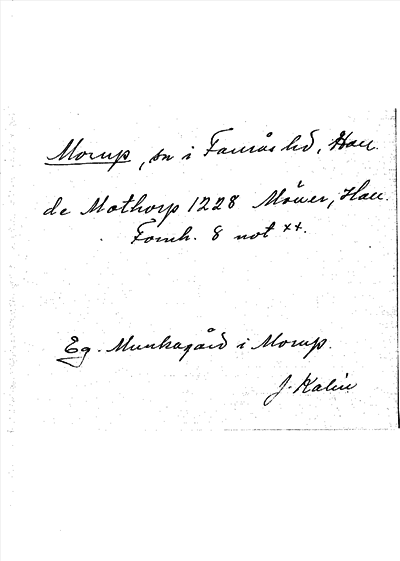 Morup, sn i Faurås hd, Hall.
de Mothorp 1228 Möller, Hall.
Fornh. 8 not ××.
Eg. Munkagård i Morup.
J. Kalén